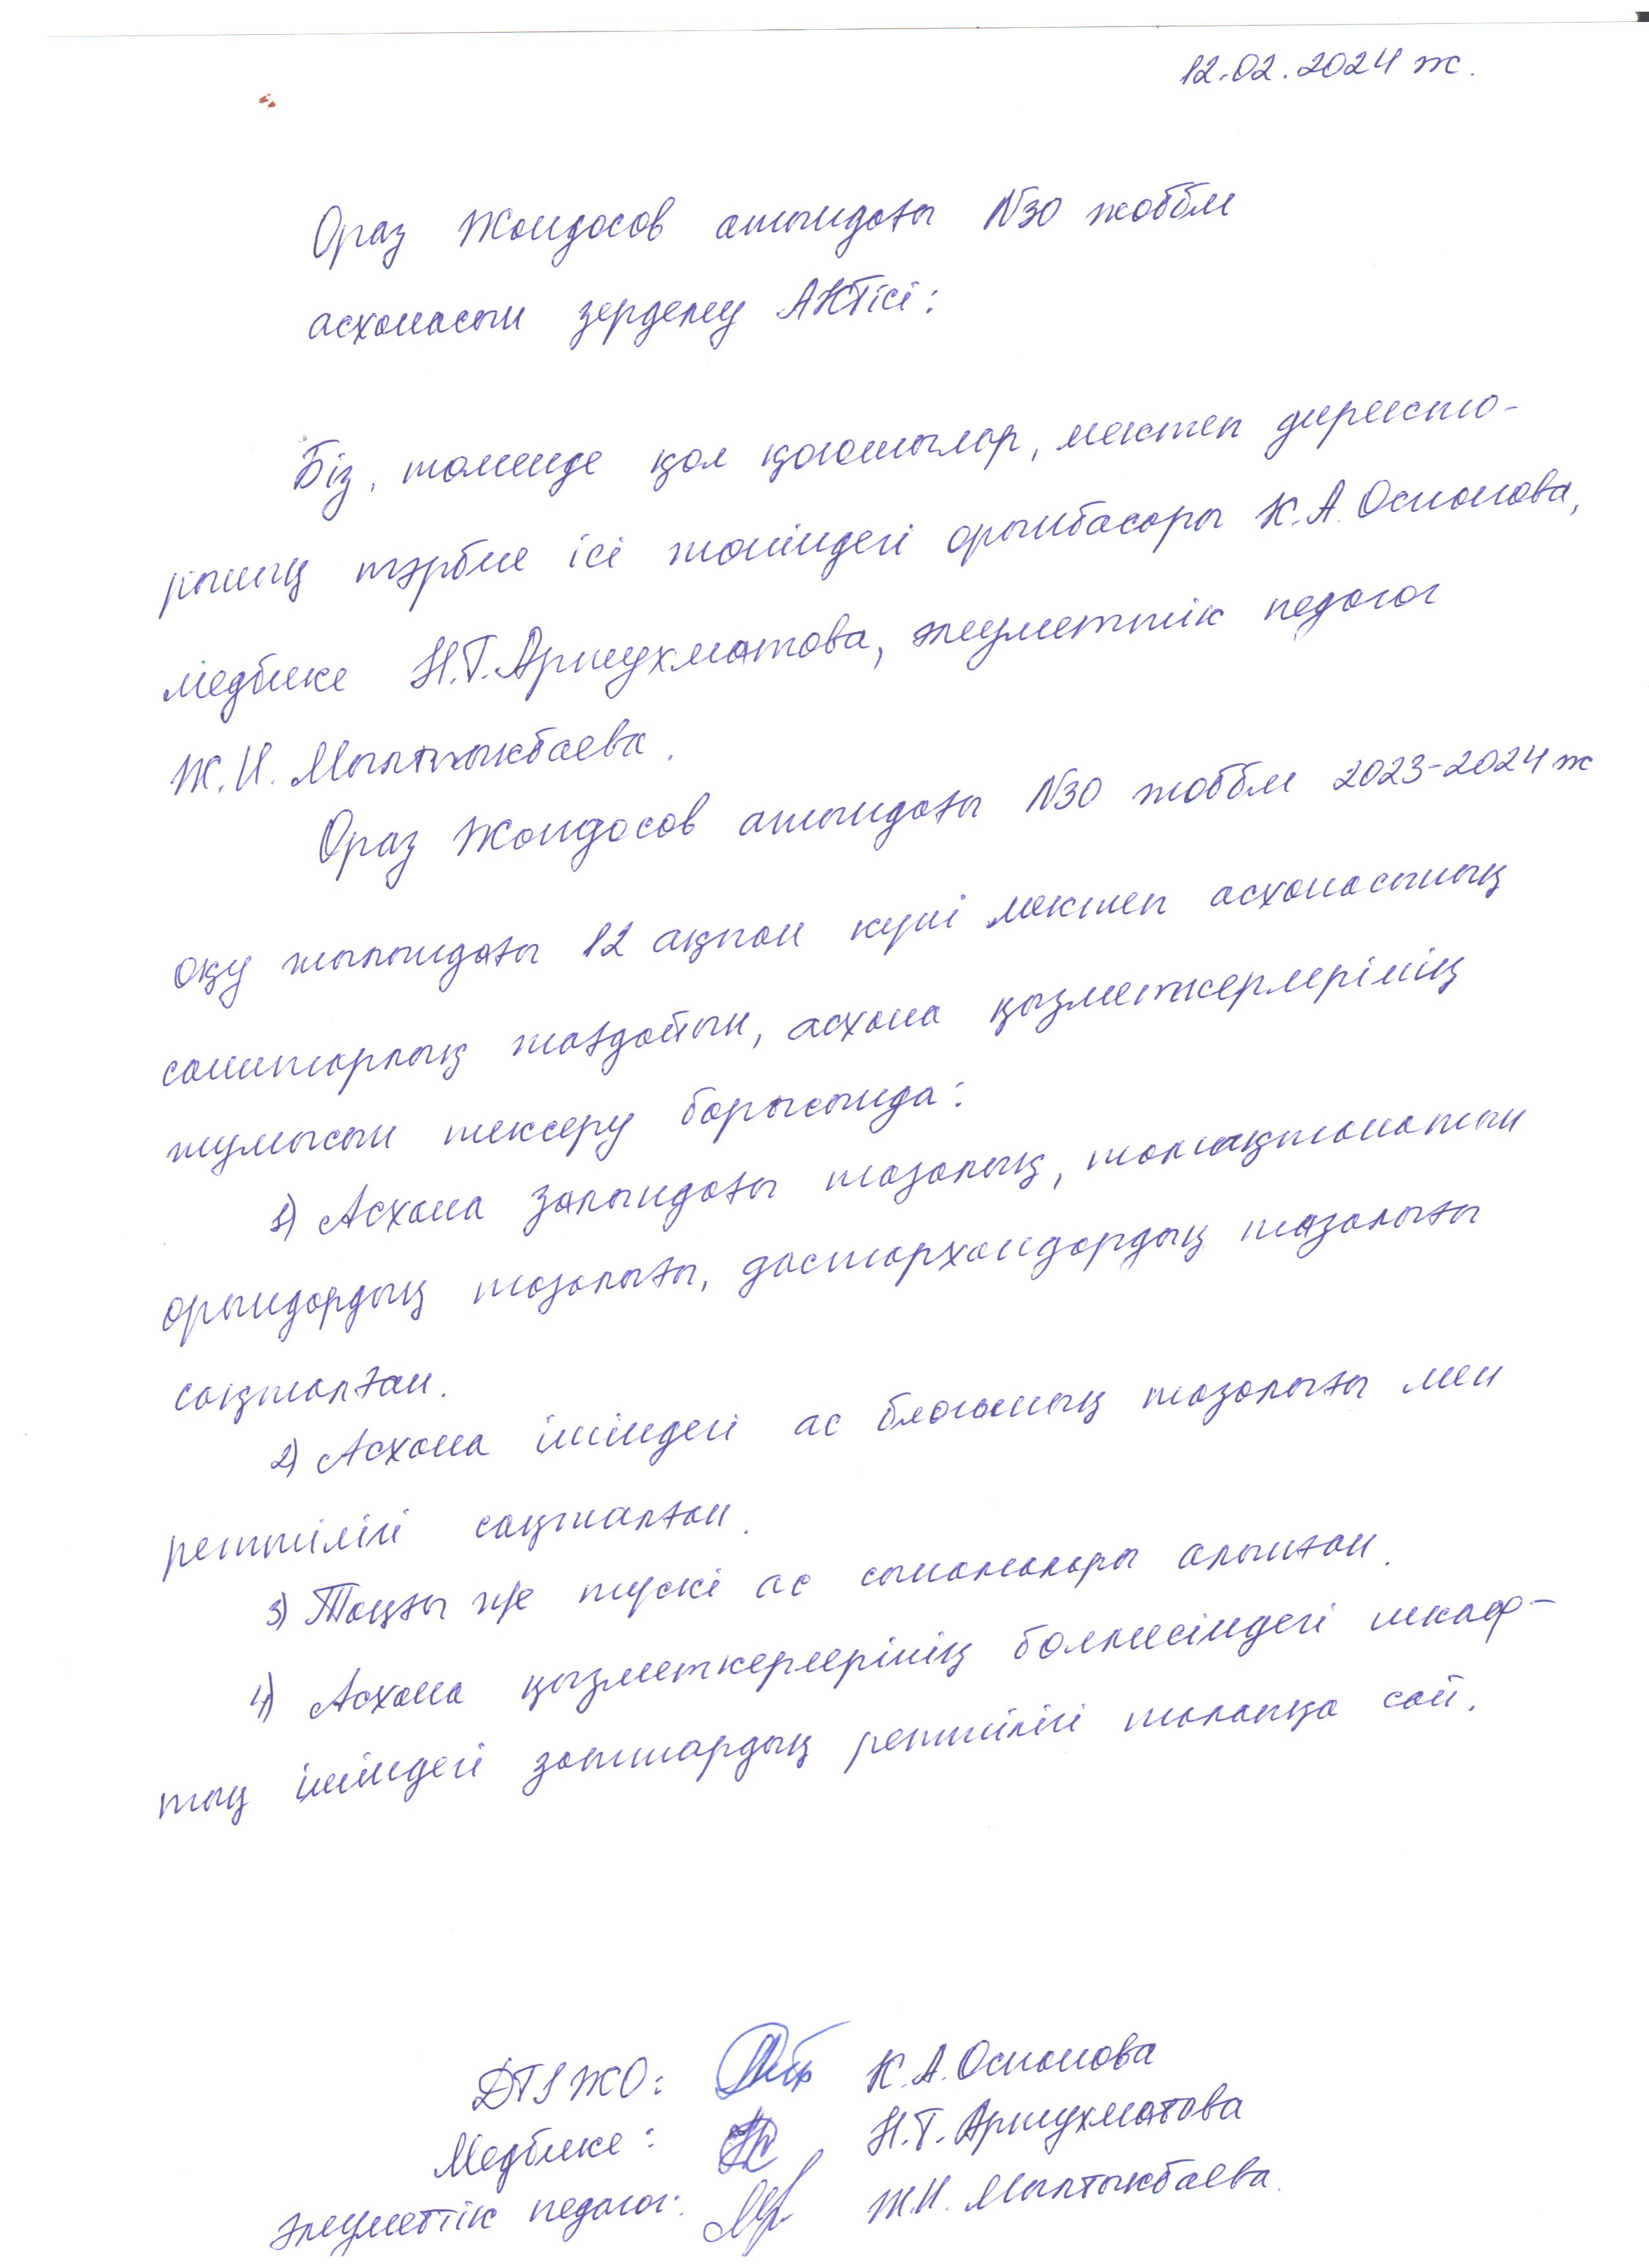 12.02.2024 ж.
Ораз Жандосов атындағы №30 жоббм
асханасын зерделеу АКТісі:
Біз, төменде қол қоюшылар, мектеп директо-
рының тәрбие ісі жөніндегі орынбасары К.А. Оспанова,
медбике Н.Т. Артухматова, әлеуметтік педагог
Ж.И. Мылтыкбаева.
Ораз Жандосов атындағы №30 жоббм 2023-2024 ж
оқу жылындағы 12 ақпан күні мектеп асханасының
санитарлық жағдайын, асхана қызметкерлерінің
жұмысын тексеру барысында:
1) Асхана залындағы тазалық, тамақтанатын
орындардың тазалығы, дастархандардың тазалығы
сақталған.
2) Асхана ішіндегі ас блогының тазалығы мен
реттілігі сақталған.
3) Таңғы ж/е түскі ас сынамалары алынған.
4) Асхана қызметкерлерінің бөлмесіндегі шкаф-
тың ішіндегі заттардың реттілігі талапқа сай.
ДТІЖО: К.А. Оспанова
Медбике: Н.Т. Артухматова
Әлеуметтік педагог: Ж.И. Мылтыкбаева.